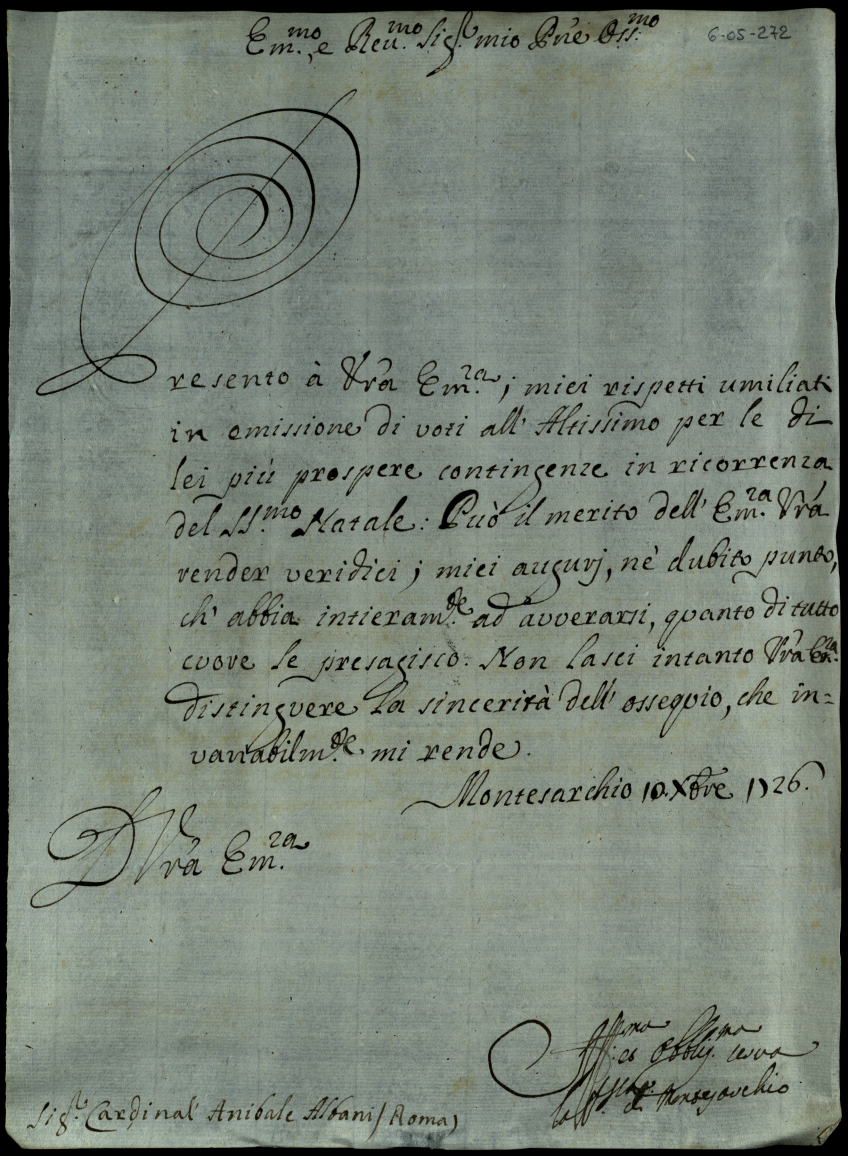 Em.mo e Reu.mo Sig.r mio Prñe Oss.mo
6-05-272
Presento à Vrã Em.za i miei rispetti umiliati
in emissione di voti all' Altissimo per le di
lei più prospere contingenze in ricorrenza
del SS.mo Natale: Può il merito dell' Em.za Vrã
render veridici i miei augurj, nè dubito punto,
ch' abbia intieram.te ad avverarsi, quanto di tutto
cuore le presagisco. Non lasci intanto Vrã Em.za
distinguere la sincerità dell' ossequio, che in=
variabilm.te mi rende.
Montesarchio 10. Xbre 1726.
D Vrã Em.za
Aff.ma et Obblig.ma serva
la di Montesarchio
Sig.r Cardinal' Anibale Albani (Roma)